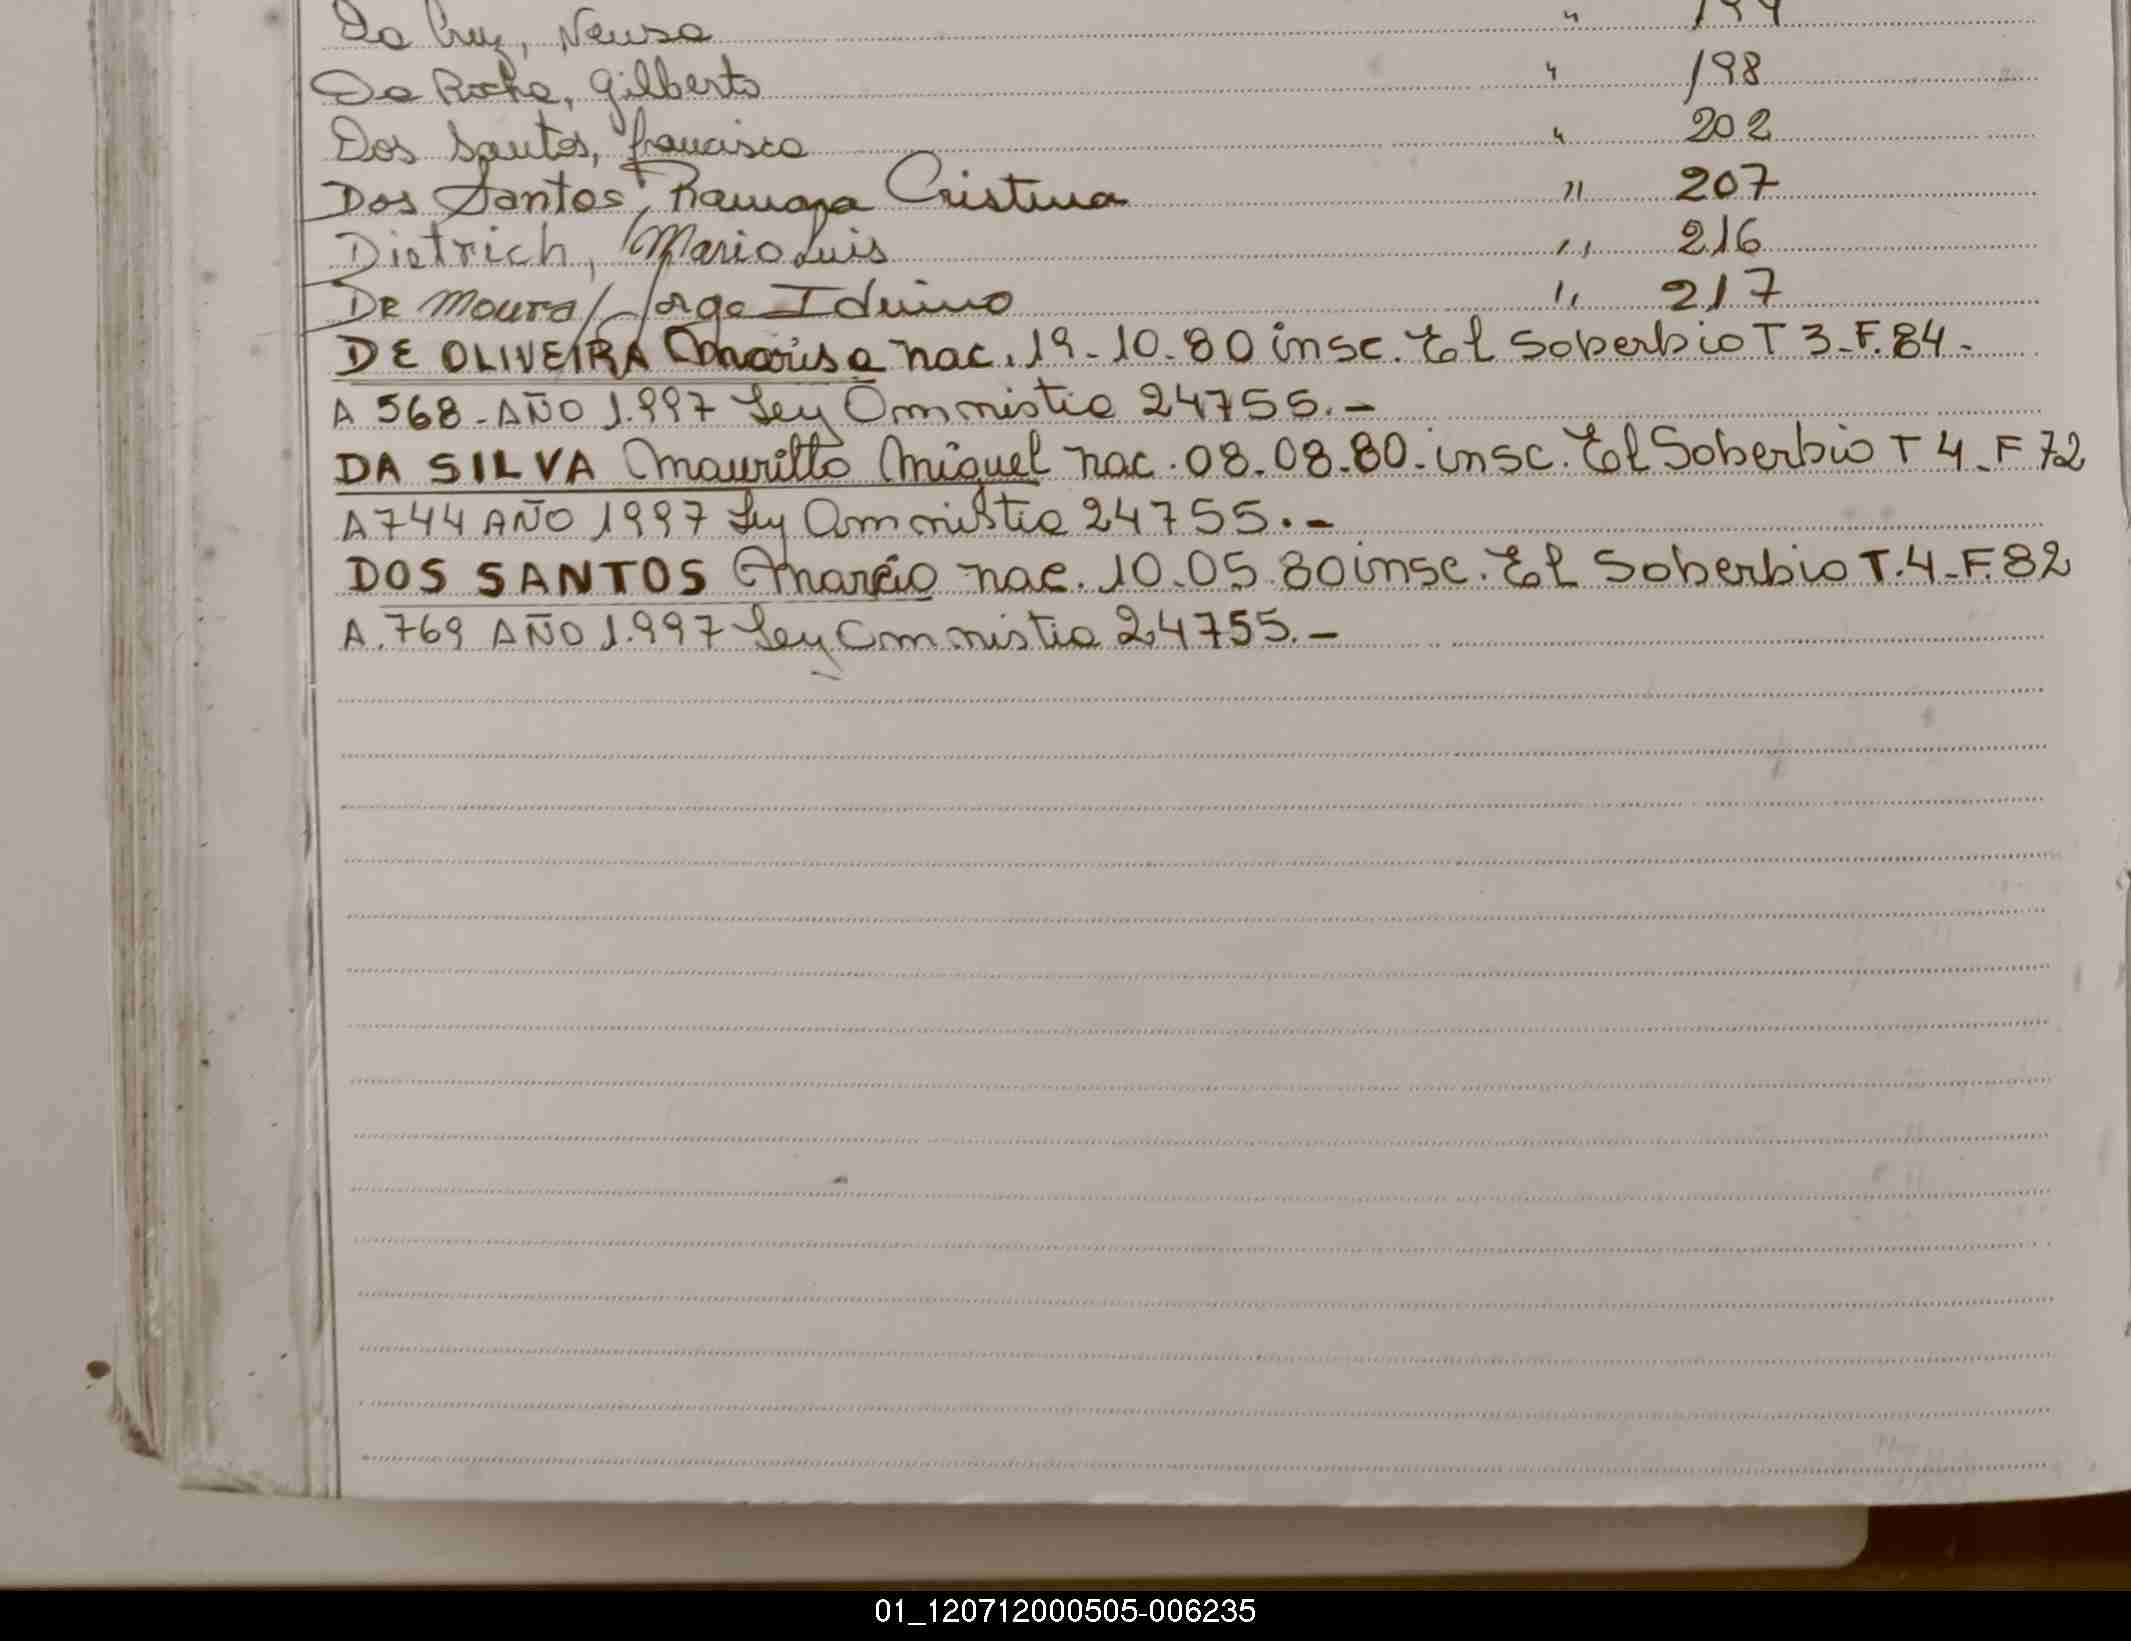 Da Cruz, Neusa " 194
Da Rocha, Gilberto " 198
Dos Santos, Francisco " 202
Dos Santos, Ramona Cristina " 207
Dietrich, Mario Luis " 216
De Moura, Jorge Iduino " 217
DE OLIVEIRA Marisa nac. 19-10-80 insc. El Soberbio T 3-F.84-
A 568-AÑO 1.997 Ley Ammistia 24755.-
DA SILVA Maurilto Miguel nac. 08.08.80-insc. El Soberbio T 4-F 72
A 744 AÑO 1997 Ley Ammistia 24755.-
DOS SANTOS Marcio nac. 10-05.80 insc. El Soberbio T.4-F.82
A.769 AÑO 1.997 Ley Ammistia 24755.-
01_120712000505-006235